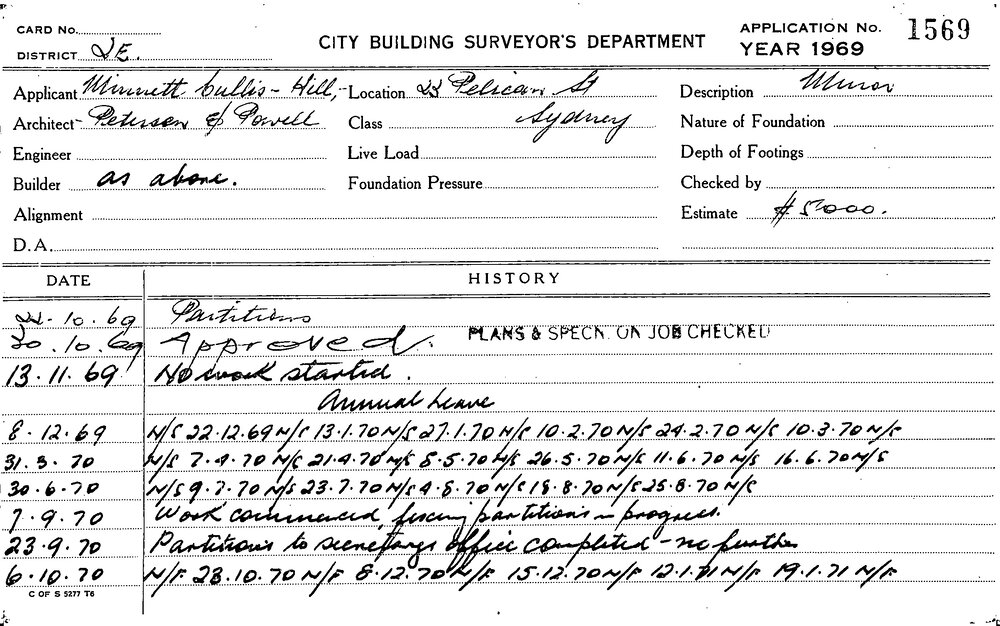 CARD No.
DISTRICT 2E.
CITY BUILDING SURVEYOR'S DEPARTMENT
APPLICATION No. 1569
YEAR 1969
Applicant Minnett Cullis-Hill,- Location 23 Pelican St Description Minor
Architect- Petersen & Powell Class Sydney Nature of Foundation
Engineer Live Load Depth of Footings
Builder as above. Foundation Pressure Checked by
Alignment Estimate $5000.
D.A.
DATE HISTORY
22.10.69 Partitions
30.10.69 Approved. PLANS & SPECN. ON JOB CHECKED
13.11.69 No work started.
Annual Leave
8.12.69 N/S 22.12.69 N/S 13.1.70 N/S 27.1.70 N/S 10.2.70 N/S 24.2.70 N/S 10.3.70 N/S
31.3.70 N/S 7.4.70 N/S 21.4.70 N/S 5.5.70 N/S 26.5.70 N/S 11.6.70 N/S 16.6.70 N/S
30.6.70 N/S 9.7.70 N/S 23.7.70 N/S 4.8.70 N/S 18.8.70 N/S 25.8.70 N/S
7.9.70 Work commenced, fixing partitions in progress.
23.9.70 Partitions to secretarys office completed - no further
6.10.70 N/F 28.10.70 N/F 8.12.70 N/F 15.12.70 N/F 12.1.71 N/F 19.1.71 N/F
C OF S 5277 T6